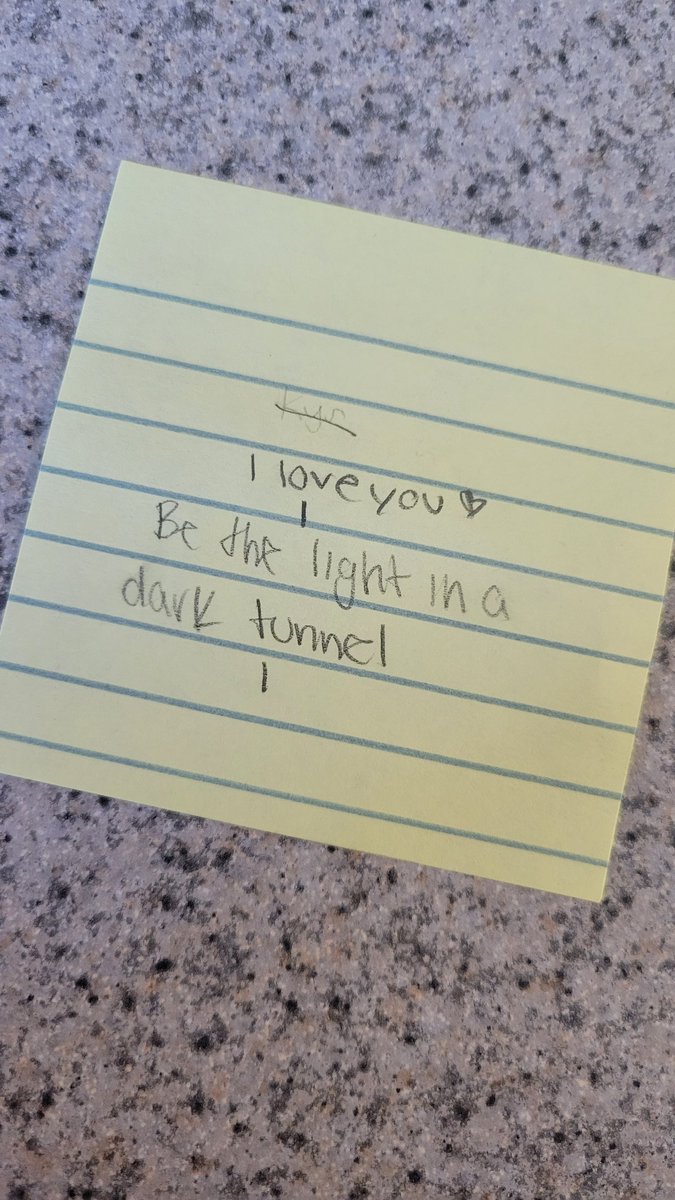 I love you ♥
Be the light in a
dark tunnel